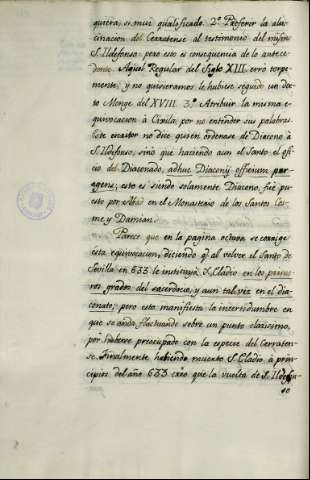 quiera, si mui qualificado. 2.º Preferir la alu-
cinacion del Cerratense al testimonio del mismo
S. Ildefonso; pero esto es consequencia de lo antece-
dente. Aquel Regular del Siglo XIII. erró torpe-
mente; y no quisieramos le hubiese seguido un doc-
to Monge del XVIII. 3.º Atribuir la misma e-
quivocacion à Cixila; por no entender sus palabras.
Este escritor no dice quién ordenase de Diacono à
S. Ildefonso, sino que haciendo aun el Santo el offi-
cio del Diaconado, adhuc Diaconij officium per-
agens; esto es siendo solamente Diacono, fue pu-
esto por Abad en el Monasterio de los Santos Cos-
me, y Damian.
Parece que en la pagina octava se corrige
esta equivocacion, diciendo q.e al volver el Santo de
Sevilla en 633 le instituyó S. Eladio en los primeros
grados del sacerdocio, y aun tal vez en el dia-
conato; pero esto manifiesta la incertidumbre en
que se anda, fluctuando sobre un punto clarissimo,
por haberse preocupado con la especie del Cerraten-
se. Finalmente habiendo muerto S. Eladio à prin-
cipios del año 633 creo que la vuelta de S. Ildefon-
so